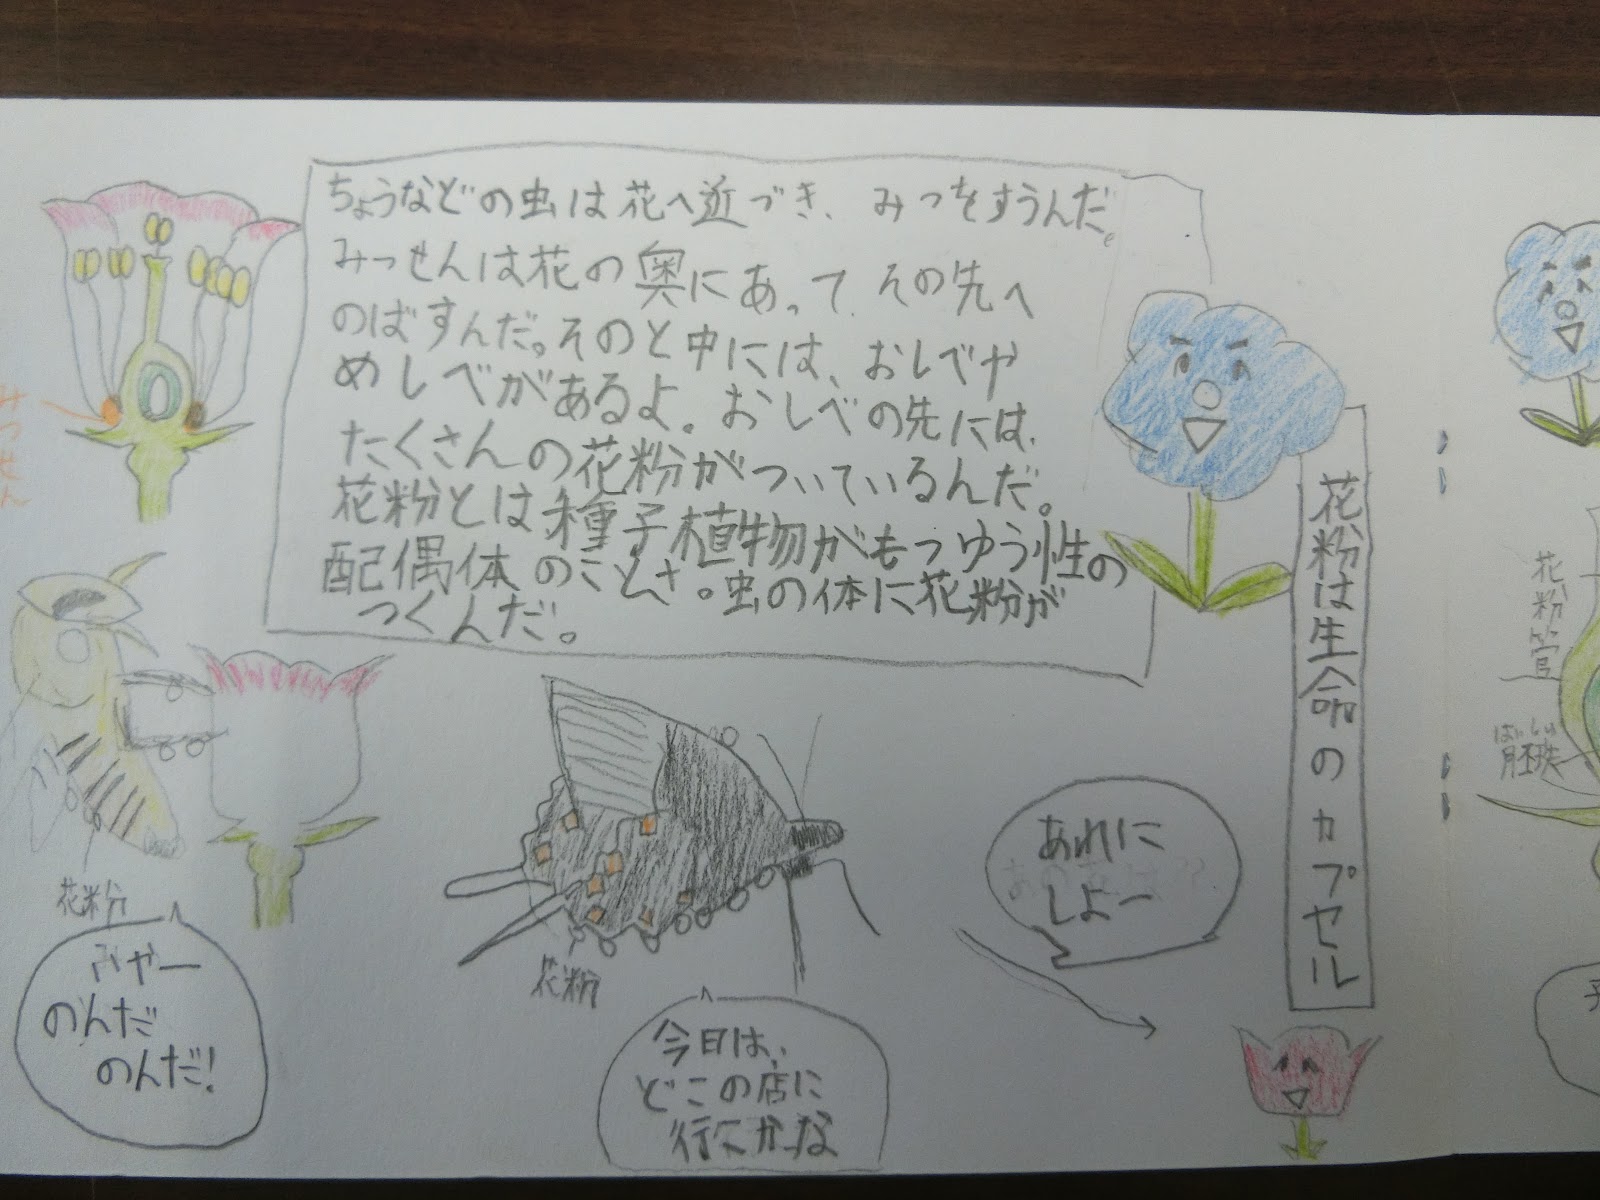 ちょうなどの虫は花へ近づき、みつをすうんだ。
みっせんは花の奥にあって、その先へ
のばすんだ。そのと中には、おしべや
めしべがあるよ。おしべの先には、
たくさんの花粉がついているんだ。
花粉とは種子植物がもつゆう性の
配偶体のことさ。虫の体に花粉が
つくんだ。
みつせん
花粉は生命のカプセル
花粉管
はいしゅ
胚珠
花粉
ぷやー
のんだ
のんだ!
花粉
今日は、
どこの店に
行くかな
あれに
しよー